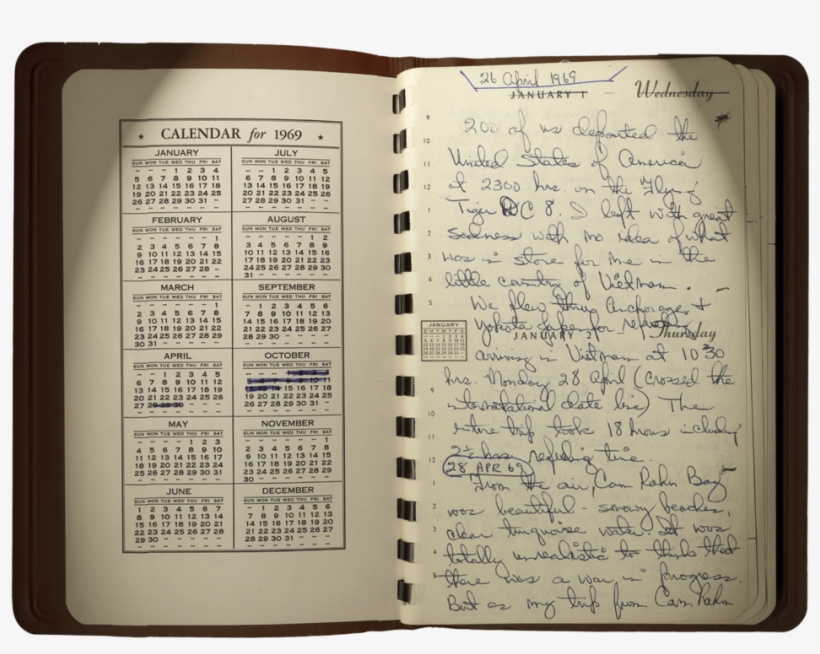 ★ CALENDAR for 1969 ★
JANUARY
SUN MON TUE WED THU FRI SAT
- - - 1 2 3 4
5 6 7 8 9 10 11
12 13 14 15 16 17 18
19 20 21 22 23 24 25
26 27 28 29 30 31 -
JULY
SUN MON TUE WED THU FRI SAT
- - 1 2 3 4 5
6 7 8 9 10 11 12
13 14 15 16 17 18 19
20 21 22 23 24 25 26
27 28 29 30 31 - -
FEBRUARY
SUN MON TUE WED THU FRI SAT
- - - - - - 1
2 3 4 5 6 7 8
9 10 11 12 13 14 15
16 17 18 19 20 21 22
23 24 25 26 27 28 -
AUGUST
SUN MON TUE WED THU FRI SAT
- - - - - 1 2
3 4 5 6 7 8 9
10 11 12 13 14 15 16
17 18 19 20 21 22 23
24 25 26 27 28 29 30
31 - - - - - -
MARCH
SUN MON TUE WED THU FRI SAT
- - - - - - 1
2 3 4 5 6 7 8
9 10 11 12 13 14 15
16 17 18 19 20 21 22
23 24 25 26 27 28 29
30 31 - - - - -
SEPTEMBER
SUN MON TUE WED THU FRI SAT
- 1 2 3 4 5 6
7 8 9 10 11 12 13
14 15 16 17 18 19 20
21 22 23 24 25 26 27
28 29 30 - - - -
APRIL
SUN MON TUE WED THU FRI SAT
- - 1 2 3 4 5
6 7 8 9 10 11 12
13 14 15 16 17 18 19
20 21 22 23 24 25 26
27 28 29 30 - - -
OCTOBER
SUN MON TUE WED THU FRI SAT
15 16 17 18
19 20 21 22 23 24 25
26 27 28 29 30 31 -
MAY
SUN MON TUE WED THU FRI SAT
- - - - 1 2 3
4 5 6 7 8 9 10
11 12 13 14 15 16 17
18 19 20 21 22 23 24
25 26 27 28 29 30 31
NOVEMBER
SUN MON TUE WED THU FRI SAT
- - - - - - 1
2 3 4 5 6 7 8
9 10 11 12 13 14 15
16 17 18 19 20 21 22
23 24 25 26 27 28 29
30 - - - - - -
JUNE
SUN MON TUE WED THU FRI SAT
1 2 3 4 5 6 7
8 9 10 11 12 13 14
15 16 17 18 19 20 21
22 23 24 25 26 27 28
29 30 - - - - -
DECEMBER
SUN MON TUE WED THU FRI SAT
- 1 2 3 4 5 6
7 8 9 10 11 12 13
14 15 16 17 18 19 20
21 22 23 24 25 26 27
28 29 30 31 - - -
26 April 1969
JANUARY 1 Wednesday
200 of us departed the
United States of America
at 2300 hrs. on the Flying
Tiger DC 8. I left with great
sadness with no idea of what
was in store for me in the
little country of Vietnam.
We flew thru Anchorage +
Yokota Japan for refueling
JANUARY 2 Thursday
JANUARY
arriving in Vietnam at 1030
hrs. Monday 28 April (crossed the
international date line) The
entire trip took 18 hours including
2½ hrs. refueling time.
28 APR 69
From the air, Cam Rahn Bay
was beautiful - snowy beaches,
clear turquoise water. It was
totally unrealistic to think that
there was a war in progress.
But as my trip from Cam Rahn